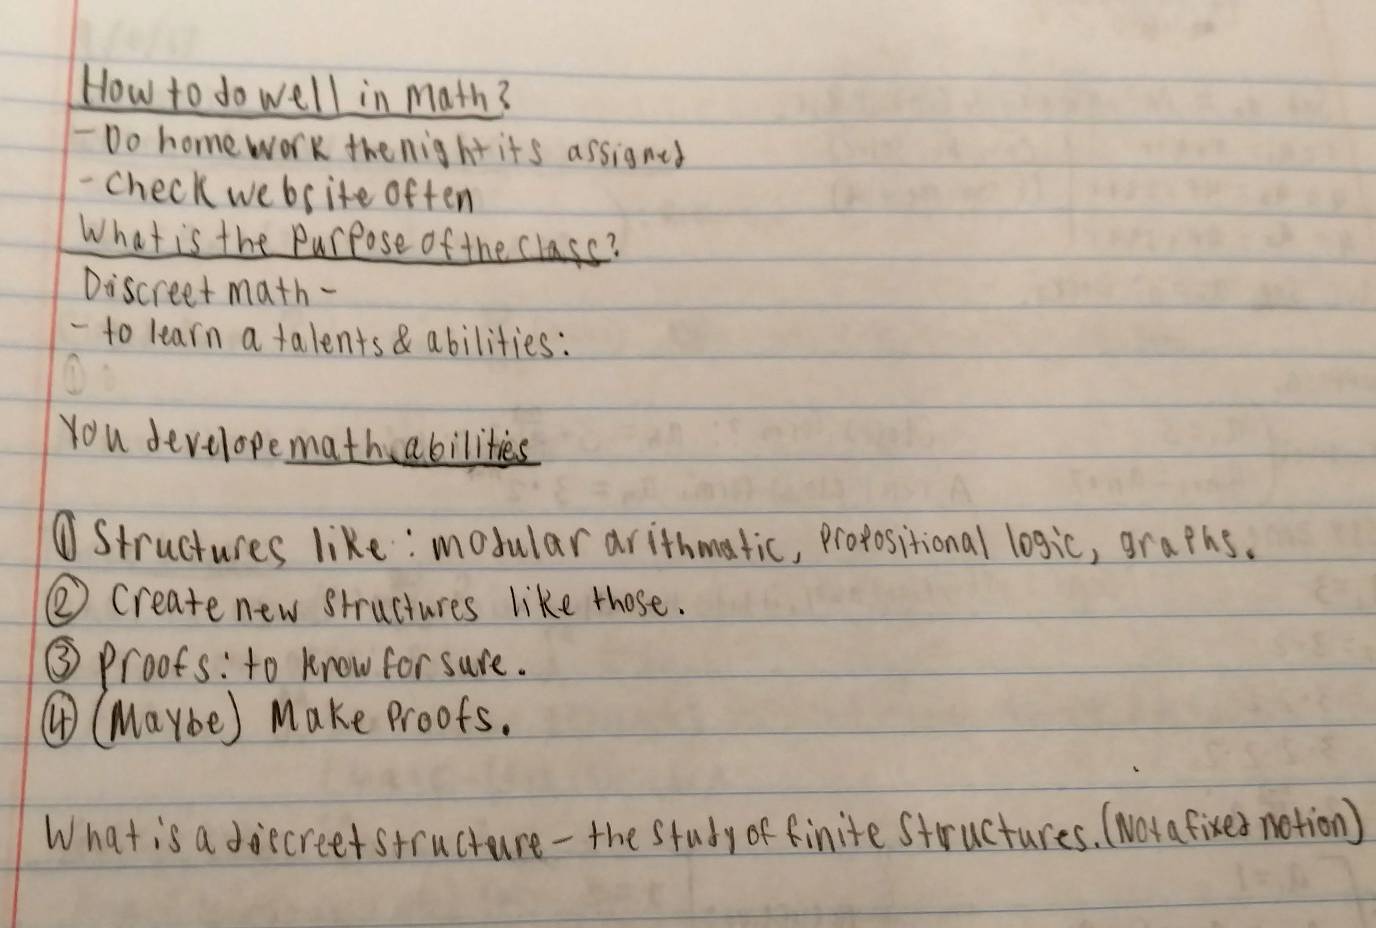 How to do well in math?
- Do homework the night its assigned
- Check website often
What is the Purpose of the class?
Discreet math -
- to learn a talents & abilities:
①
You develope math abilities
① Structures like: modular arithmatic, Propositional logic, graphs.
② Create new structures like those.
③ Proofs: to know for sure.
④ (Maybe) Make Proofs.
What is a discreet structure - the study of finite structures. (Not a fixed notion)